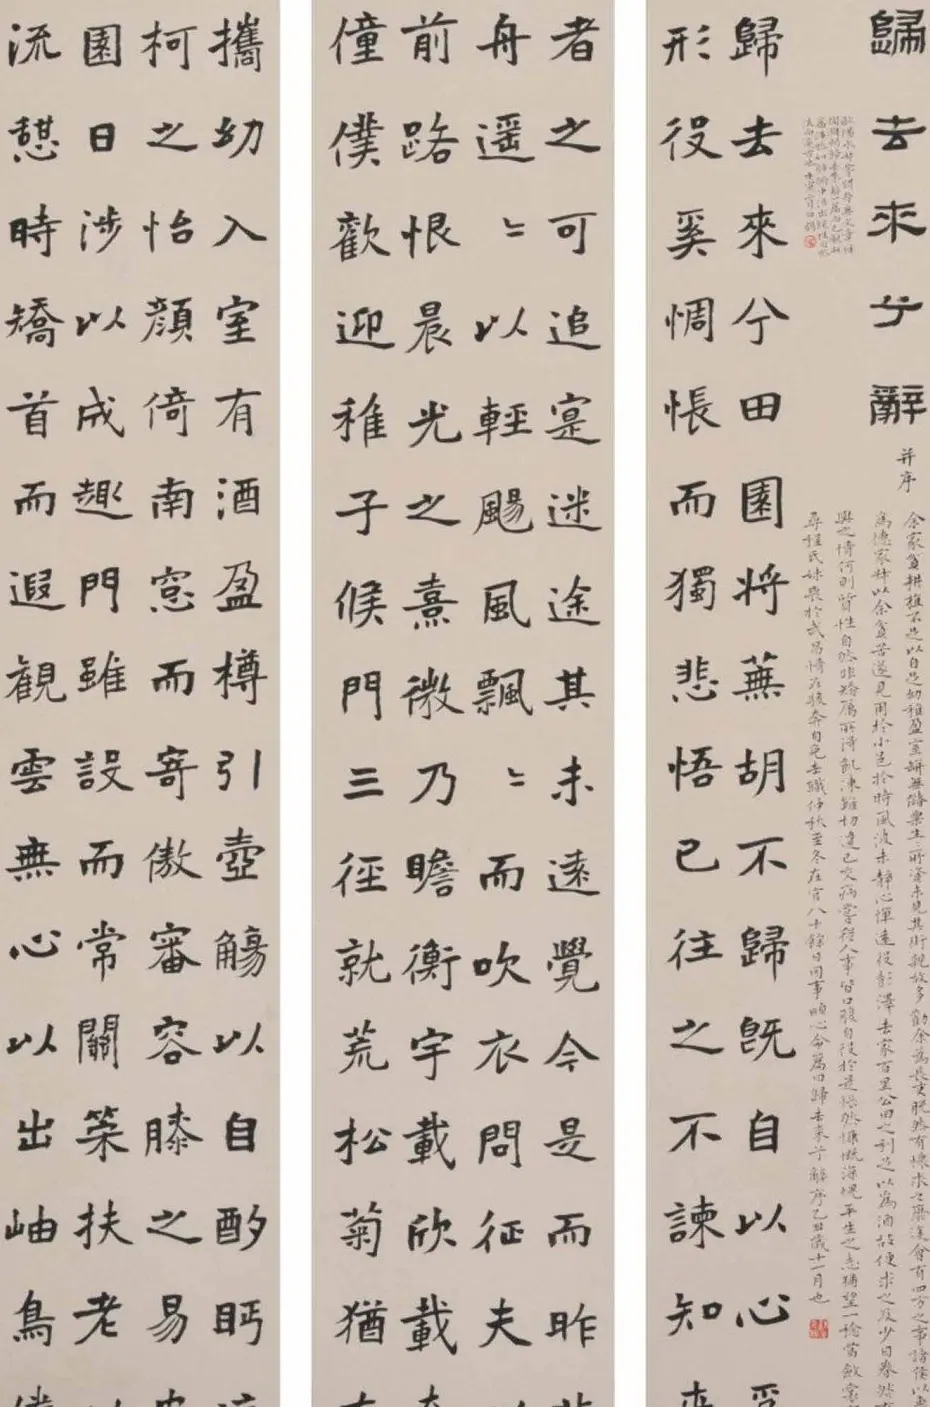 歸去來兮辭
并序
余家貧耕植不足以自足幼稚盈室缾無儲粟生〻所資未見其術親故多勸余為長吏脫然有懷求之靡途會有四方之事諸侯以惠
為德家叔以余貧苦遂見用於小邑於時風波未靜心憚遠役彭澤去家百里公田之利足以為酒故便求之及少日眷然有
興之情何則質性自然非矯厲所得飢凍雖切違己交病嘗從人事皆口腹自役於是悵然慷慨深愧平生之志猶望一稔當斂裳
尋程氏妹喪於武昌情在駿奔自免去職仲秋至冬在官八十餘日因事順心命篇曰歸去來兮辭序乙巳歲十一月也
歸去來兮田園將蕪胡不歸既自以心
形役奚惆悵而獨悲悟已往之不諫知來
者之可追寔迷途其未遠覺今是而昨
舟遥〻以輕颺風飄〻而吹衣問征夫
前路恨晨光之熹微乃瞻衡宇載欣載
僮僕歡迎稚子候門三徑就荒松菊猶
攜幼入室有酒盈樽引壺觴以自酌眄
柯之怡顏倚南窓而寄傲審容膝之易
園日涉以成趣門雖設而常關策扶老
流憇時矯首而遐觀雲無心以出岫鳥